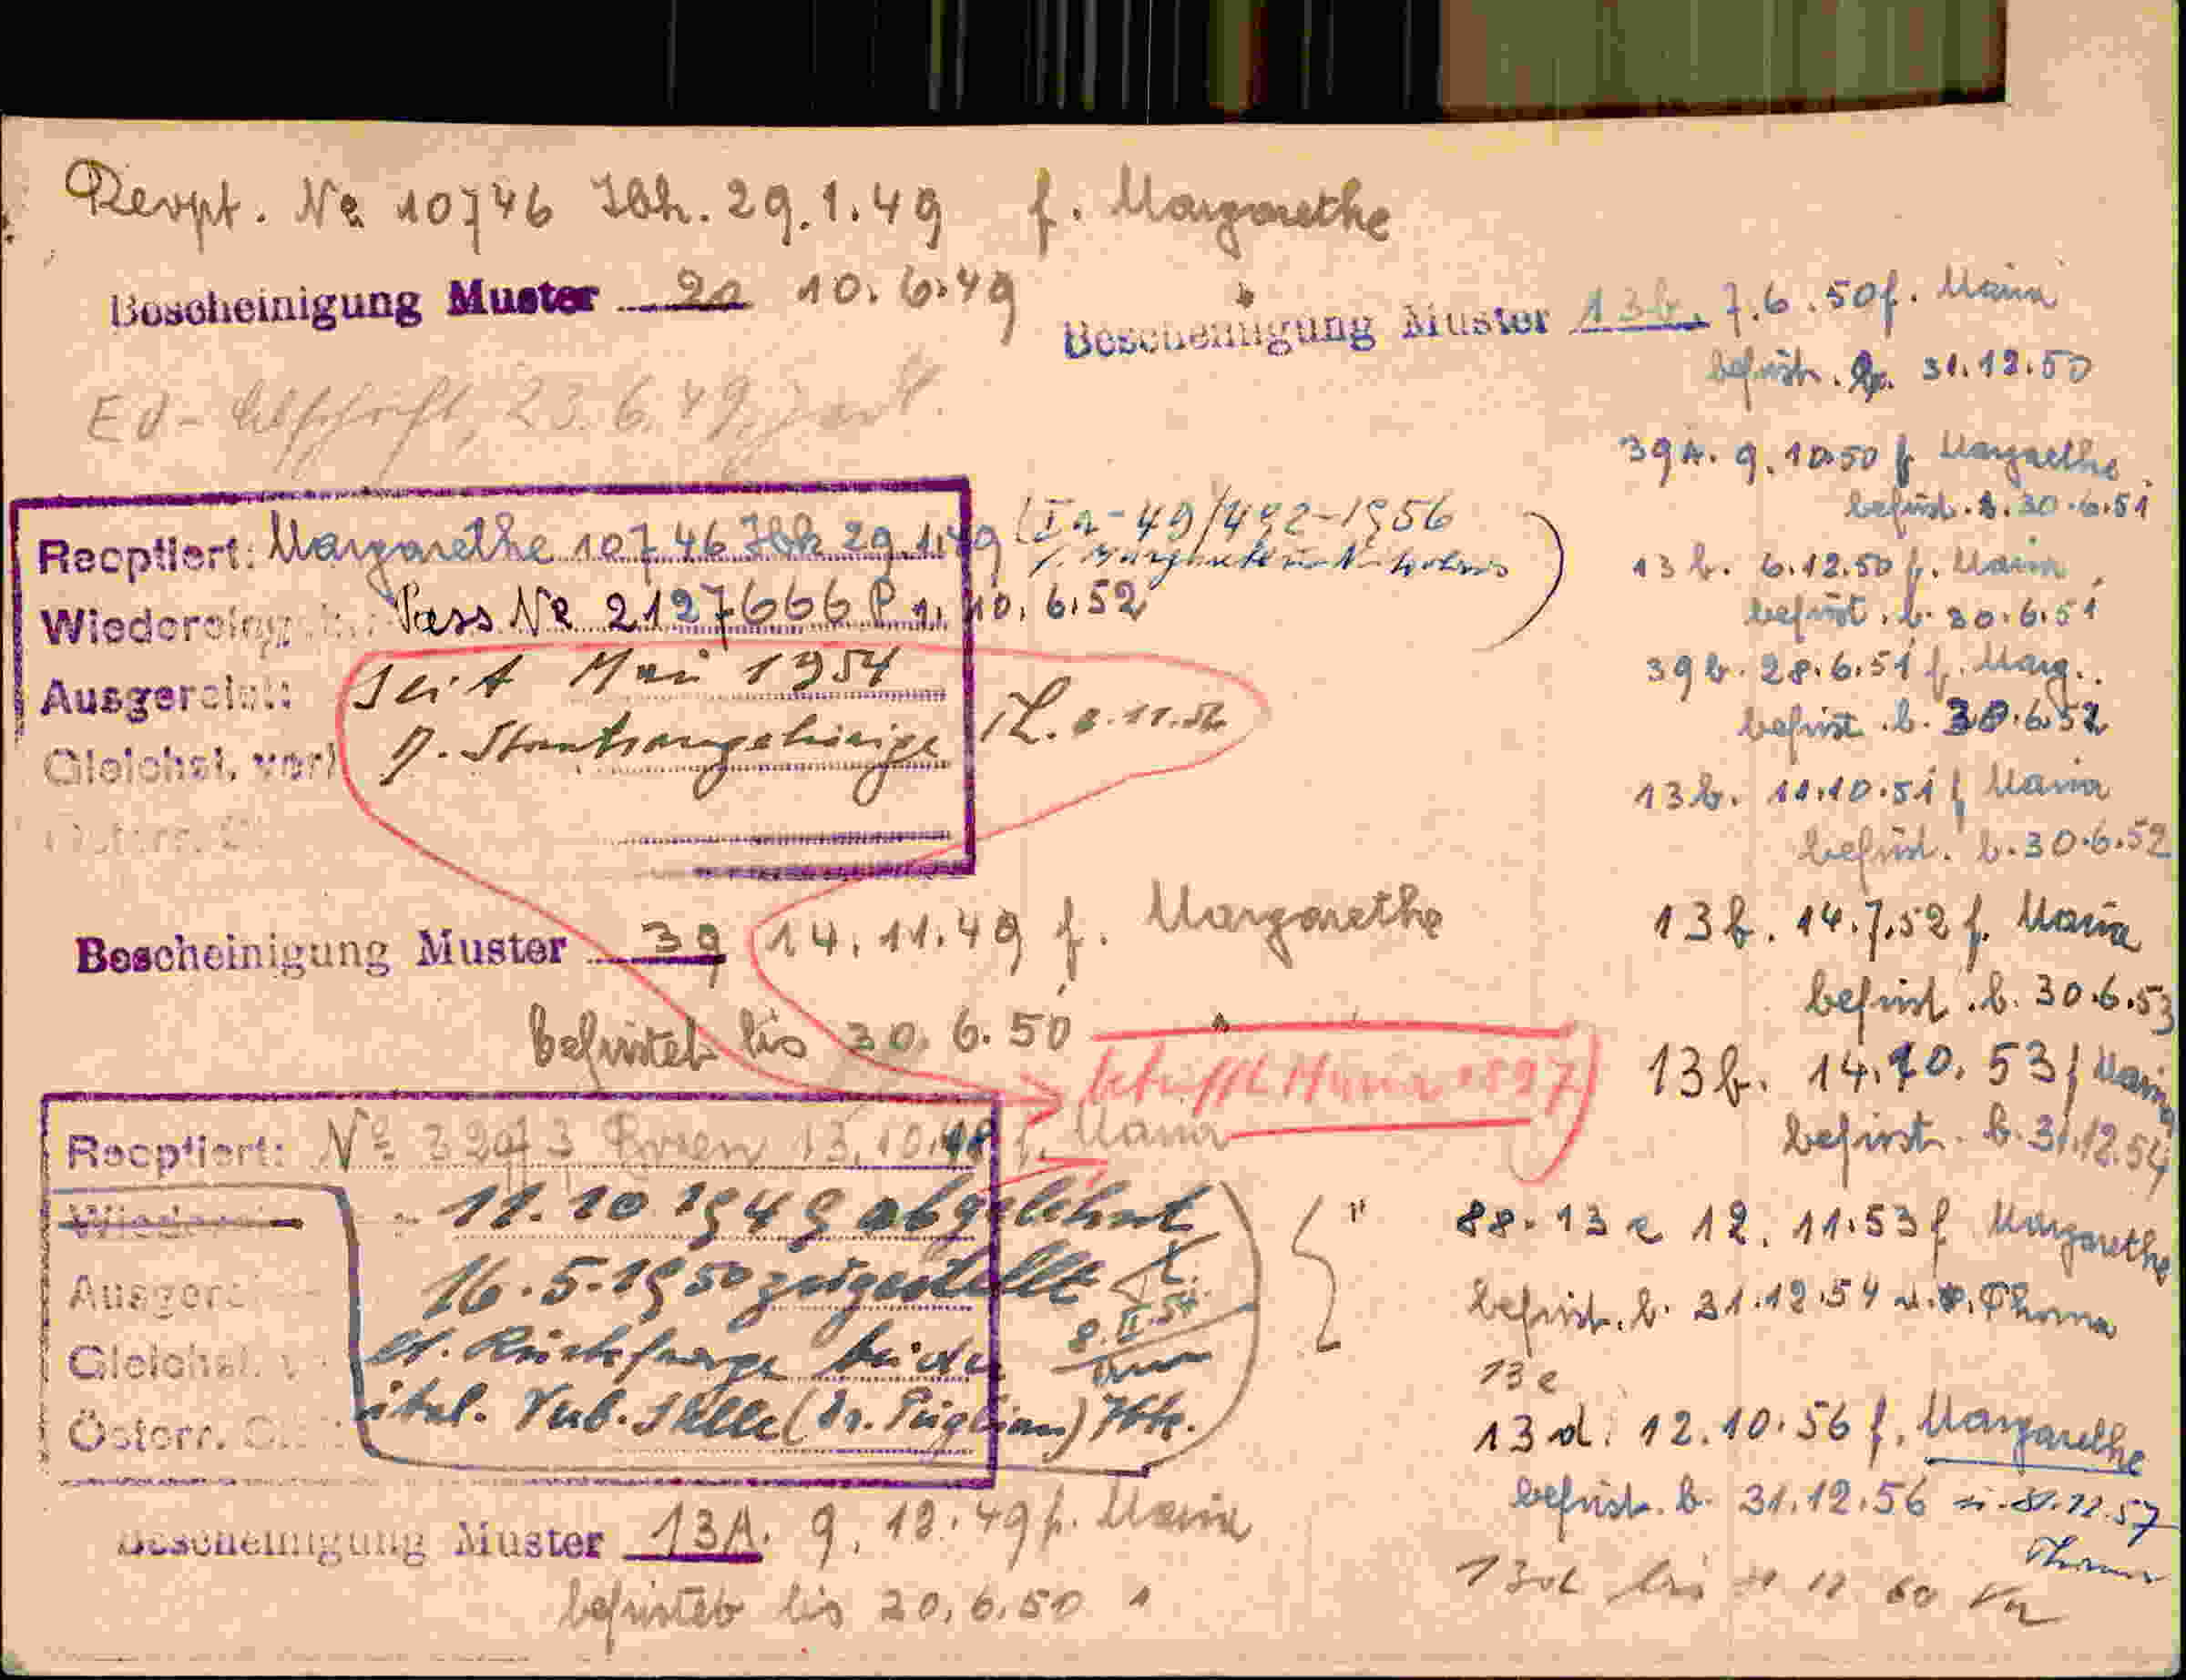 Reopt. № 10746 Ibk. 29.1.49 f. Margarethe
Bescheinigung Muster 2a 10.6.49
23.6.49
Reoptiert: Margarethe 10746 Ibk 29.1.49 (Ia-49/492-1956
Pass № 2127666 P v. 10.6.52
Ausgereist: seit Mai 1954
Gleichst. verl. Staatsangehörige
Österr.
Bescheinigung Muster 39 14.11.49 f. Margarethe
befristet bis 30.6.50
betrifft Maria 1897
Reoptiert: № 32973 Bozen 13.10.48 f. Maria
11.10 1949 abgelehnt
16.5.1950 zugestellt
Gleichst. Rückfrage bei der
Österr. ital. Verb. Stelle (Dr. Puglian) Ibk.
Bescheinigung Muster 13A. 9.12.49 f. Maria
befristet bis 20.6.50
Bescheinigung Muster 13b. 7.6.50 f. Maria
befrist. b. 31.12.50
39A. 9.10.50 f Margarethe
befrist. b. 30.6.51
13b. 6.12.50 f. Maria
befrist. b. 30.6.51
39b. 28.6.51 f. Marg.
befrist. b. 30.6.52
13b. 11.10.51 f Maria
befrist. b. 30.6.52
13b. 14.7.52 f. Maria
befrist. b. 30.6.53
13b. 14.10.53 f Maria
befrist. b. 31.12.54
88-13e 12.11.53 f Margarethe
befrist. b. 31.12.54 Thoma
13e
13d. 12.10.56 f. Margarethe
befrist. b. 31.12.56 31.12.57
Thoma
13d bis 60